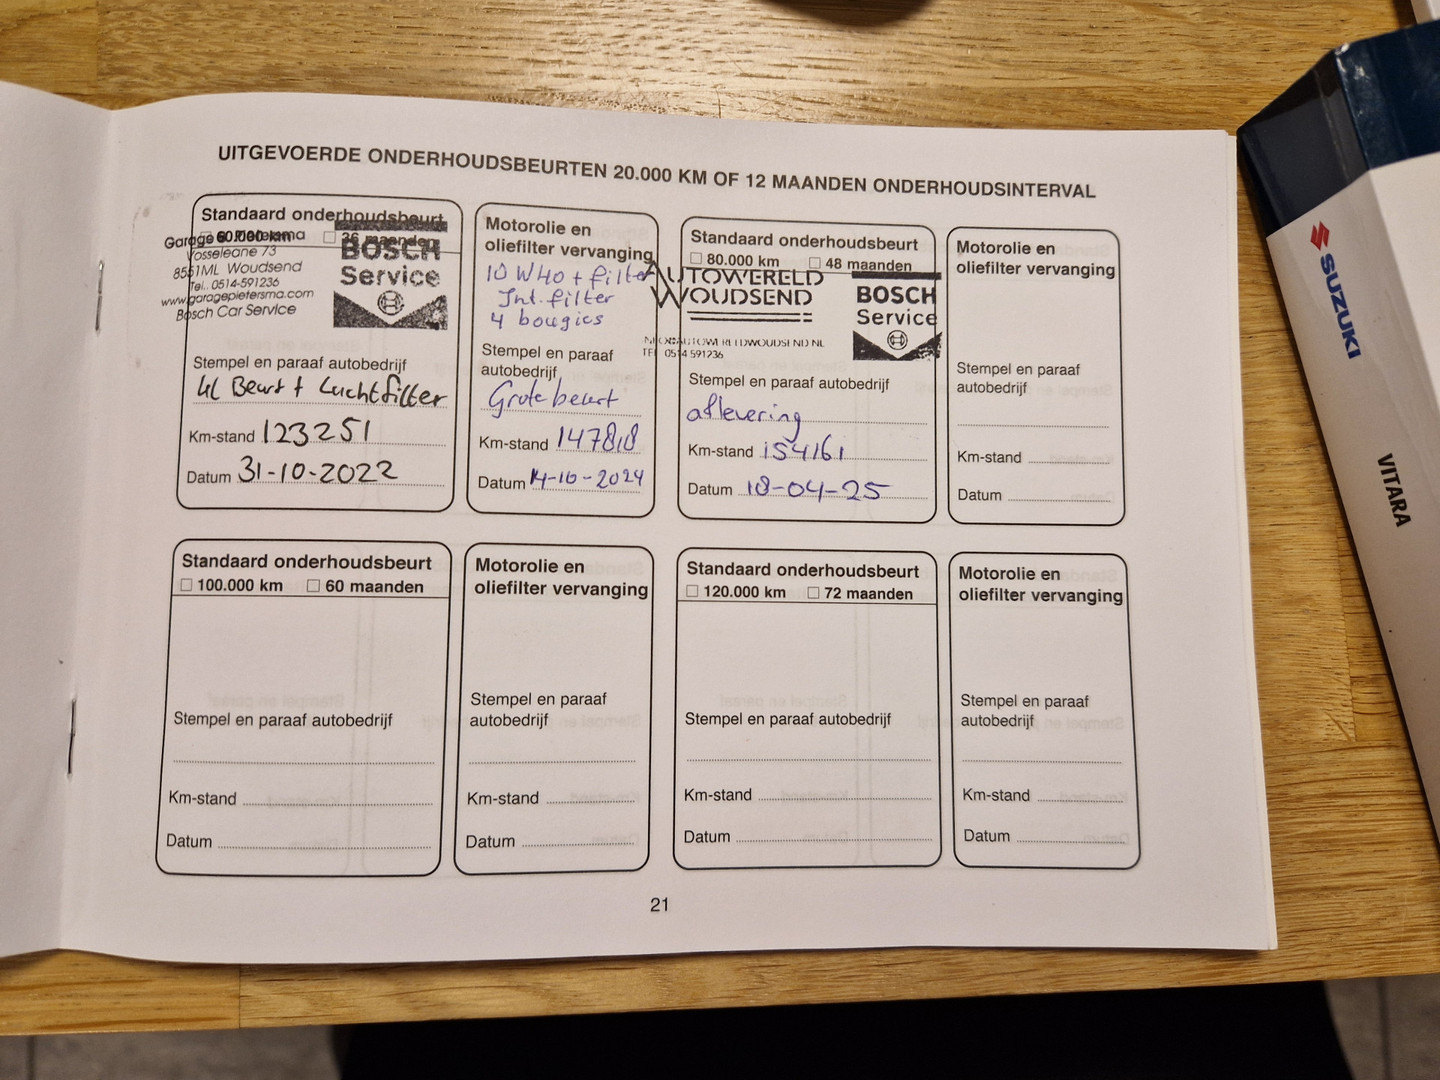 UITGEVOERDE ONDERHOUDSBEURTEN 20.000 KM OF 12 MAANDEN ONDERHOUDSINTERVAL
Standaard onderhoudsbeurt
60.000 km 36 maanden
Garage Pietersma
Vosseleane 73
8551ML Woudsend
Tel. 0514-591236
www.garagepietersma.com
Bosch Car Service
BOSCH
Service
Stempel en paraaf autobedrijf
KL Beurt + Luchtfilter
Km-stand 123251
Datum 31-10-2022
Motorolie en
oliefilter vervanging
10 W40 + filter
Int. filter
4 bougies
Stempel en paraaf
autobedrijf
Grote beurt
Km-stand 147818
Datum 14-10-2024
Standaard onderhoudsbeurt
80.000 km 48 maanden
AUTOWERELD
WOUDSEND
INFO@AUTOWERELDWOUDSEND.NL
TEL 0514 591236
BOSCH
Service
Stempel en paraaf autobedrijf
aflevering
Km-stand 154161
Datum 18-04-25
Motorolie en
oliefilter vervanging
Stempel en paraaf
autobedrijf
Km-stand
Datum
Standaard onderhoudsbeurt
100.000 km 60 maanden
Stempel en paraaf autobedrijf
Km-stand
Datum
Motorolie en
oliefilter vervanging
Stempel en paraaf
autobedrijf
Km-stand
Datum
Standaard onderhoudsbeurt
120.000 km 72 maanden
Stempel en paraaf autobedrijf
Km-stand
Datum
Motorolie en
oliefilter vervanging
Stempel en paraaf
autobedrijf
Km-stand
Datum
21
SUZUKI
VITARA